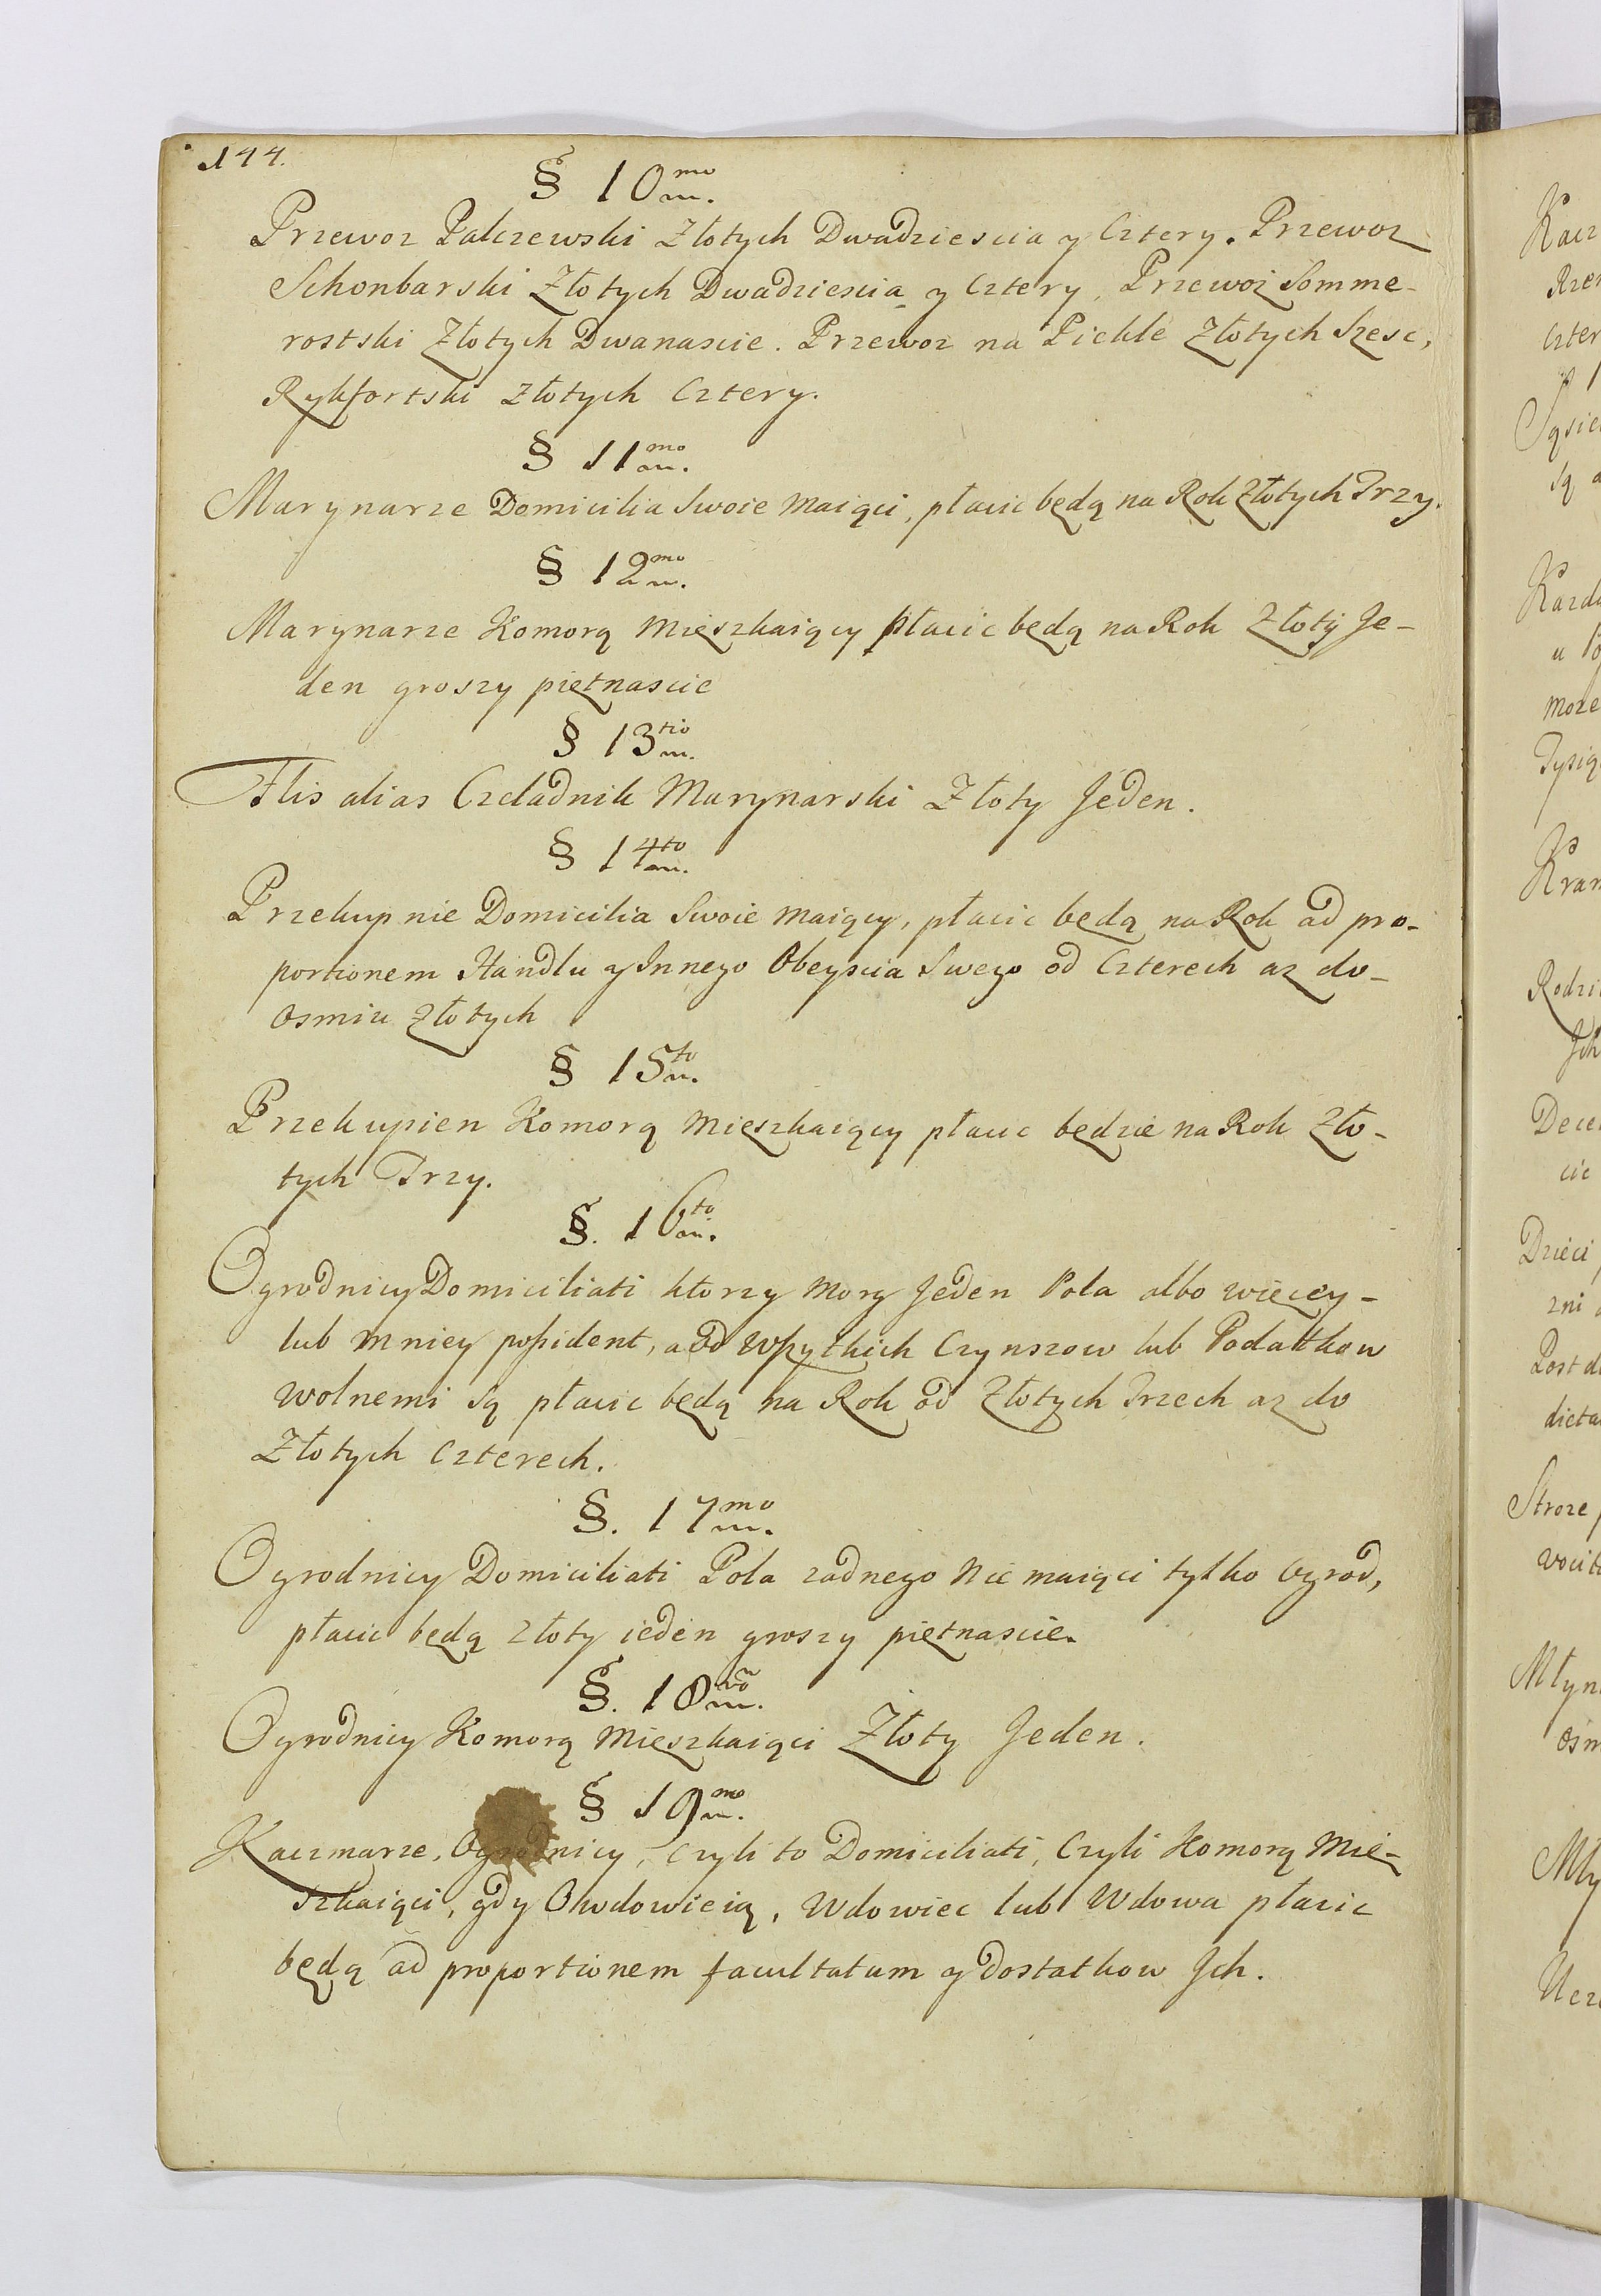 144.
§ 10mo
Przewoz Palczewski Złotych Dwadziescia y Cztery. Przewoz
Schonbarski Złotych Dwadziescia y Cztery, Przewoz Somme-
rostski Złotych Dwanascie. Przewoz na Pickle Złotych Szesc,
Rykfortski Złotych Cztery.
§ 11mo
Marynarze Domicilia Swoie maiąci, płacic będą na Rok Złotych Trzy.
§ 12mo
Marynarze Komorą Mieszkaiący płacic będą na Rok Złoty Je-
den groszy pietnascie
§ 13tio
Flis alias Czeladnik Marynarski Złoty Jeden.
§ 14to
Przekupnie Domicilia Swoie maiący, płacic będą na Rok ad pro-
portionem Handlu y Innego Obeyscia Swego od Czterech az do-
Osmiu Złotych
§ 15to
Przekupien Komorą Mieszkaiący płacic będzie na Rok Zło-
tych Trzy.
§. 16to
Ogrodnicy Domiciliati ktorzy Morg Jeden Pola albo więcey-
lub mniey possident, a od wszytkich Czynszow lub Podatkow
wolnemi są płacic będą na Rok od Złotych Trzech az do
Złotych Czterech.
§. 17mo
Ogrodnicy Domiciliati Pola zadnego Nie maiąci tylko Ogrod,
płacic będą złoty ieden groszy piętnascie.
§. 18vo
Ogrodnicy Komorą Mieszkaiąci Złoty Jeden.
§ 19mo
Kaczmarze, Ogrodnicy, czyli to Domiciliati, Czyli Komorą Mie-
szkaiąci, gdy Owdowieią, Wdowiec lub Wdowa płacic
będą ad proportionem facultatum y Dostatkow Jch.
Kacz
Czter
są a
u
moze
Tysią
Kram
Rodzi
Jch
cie
Dzieci
zni
Post
Stroze
Młyn